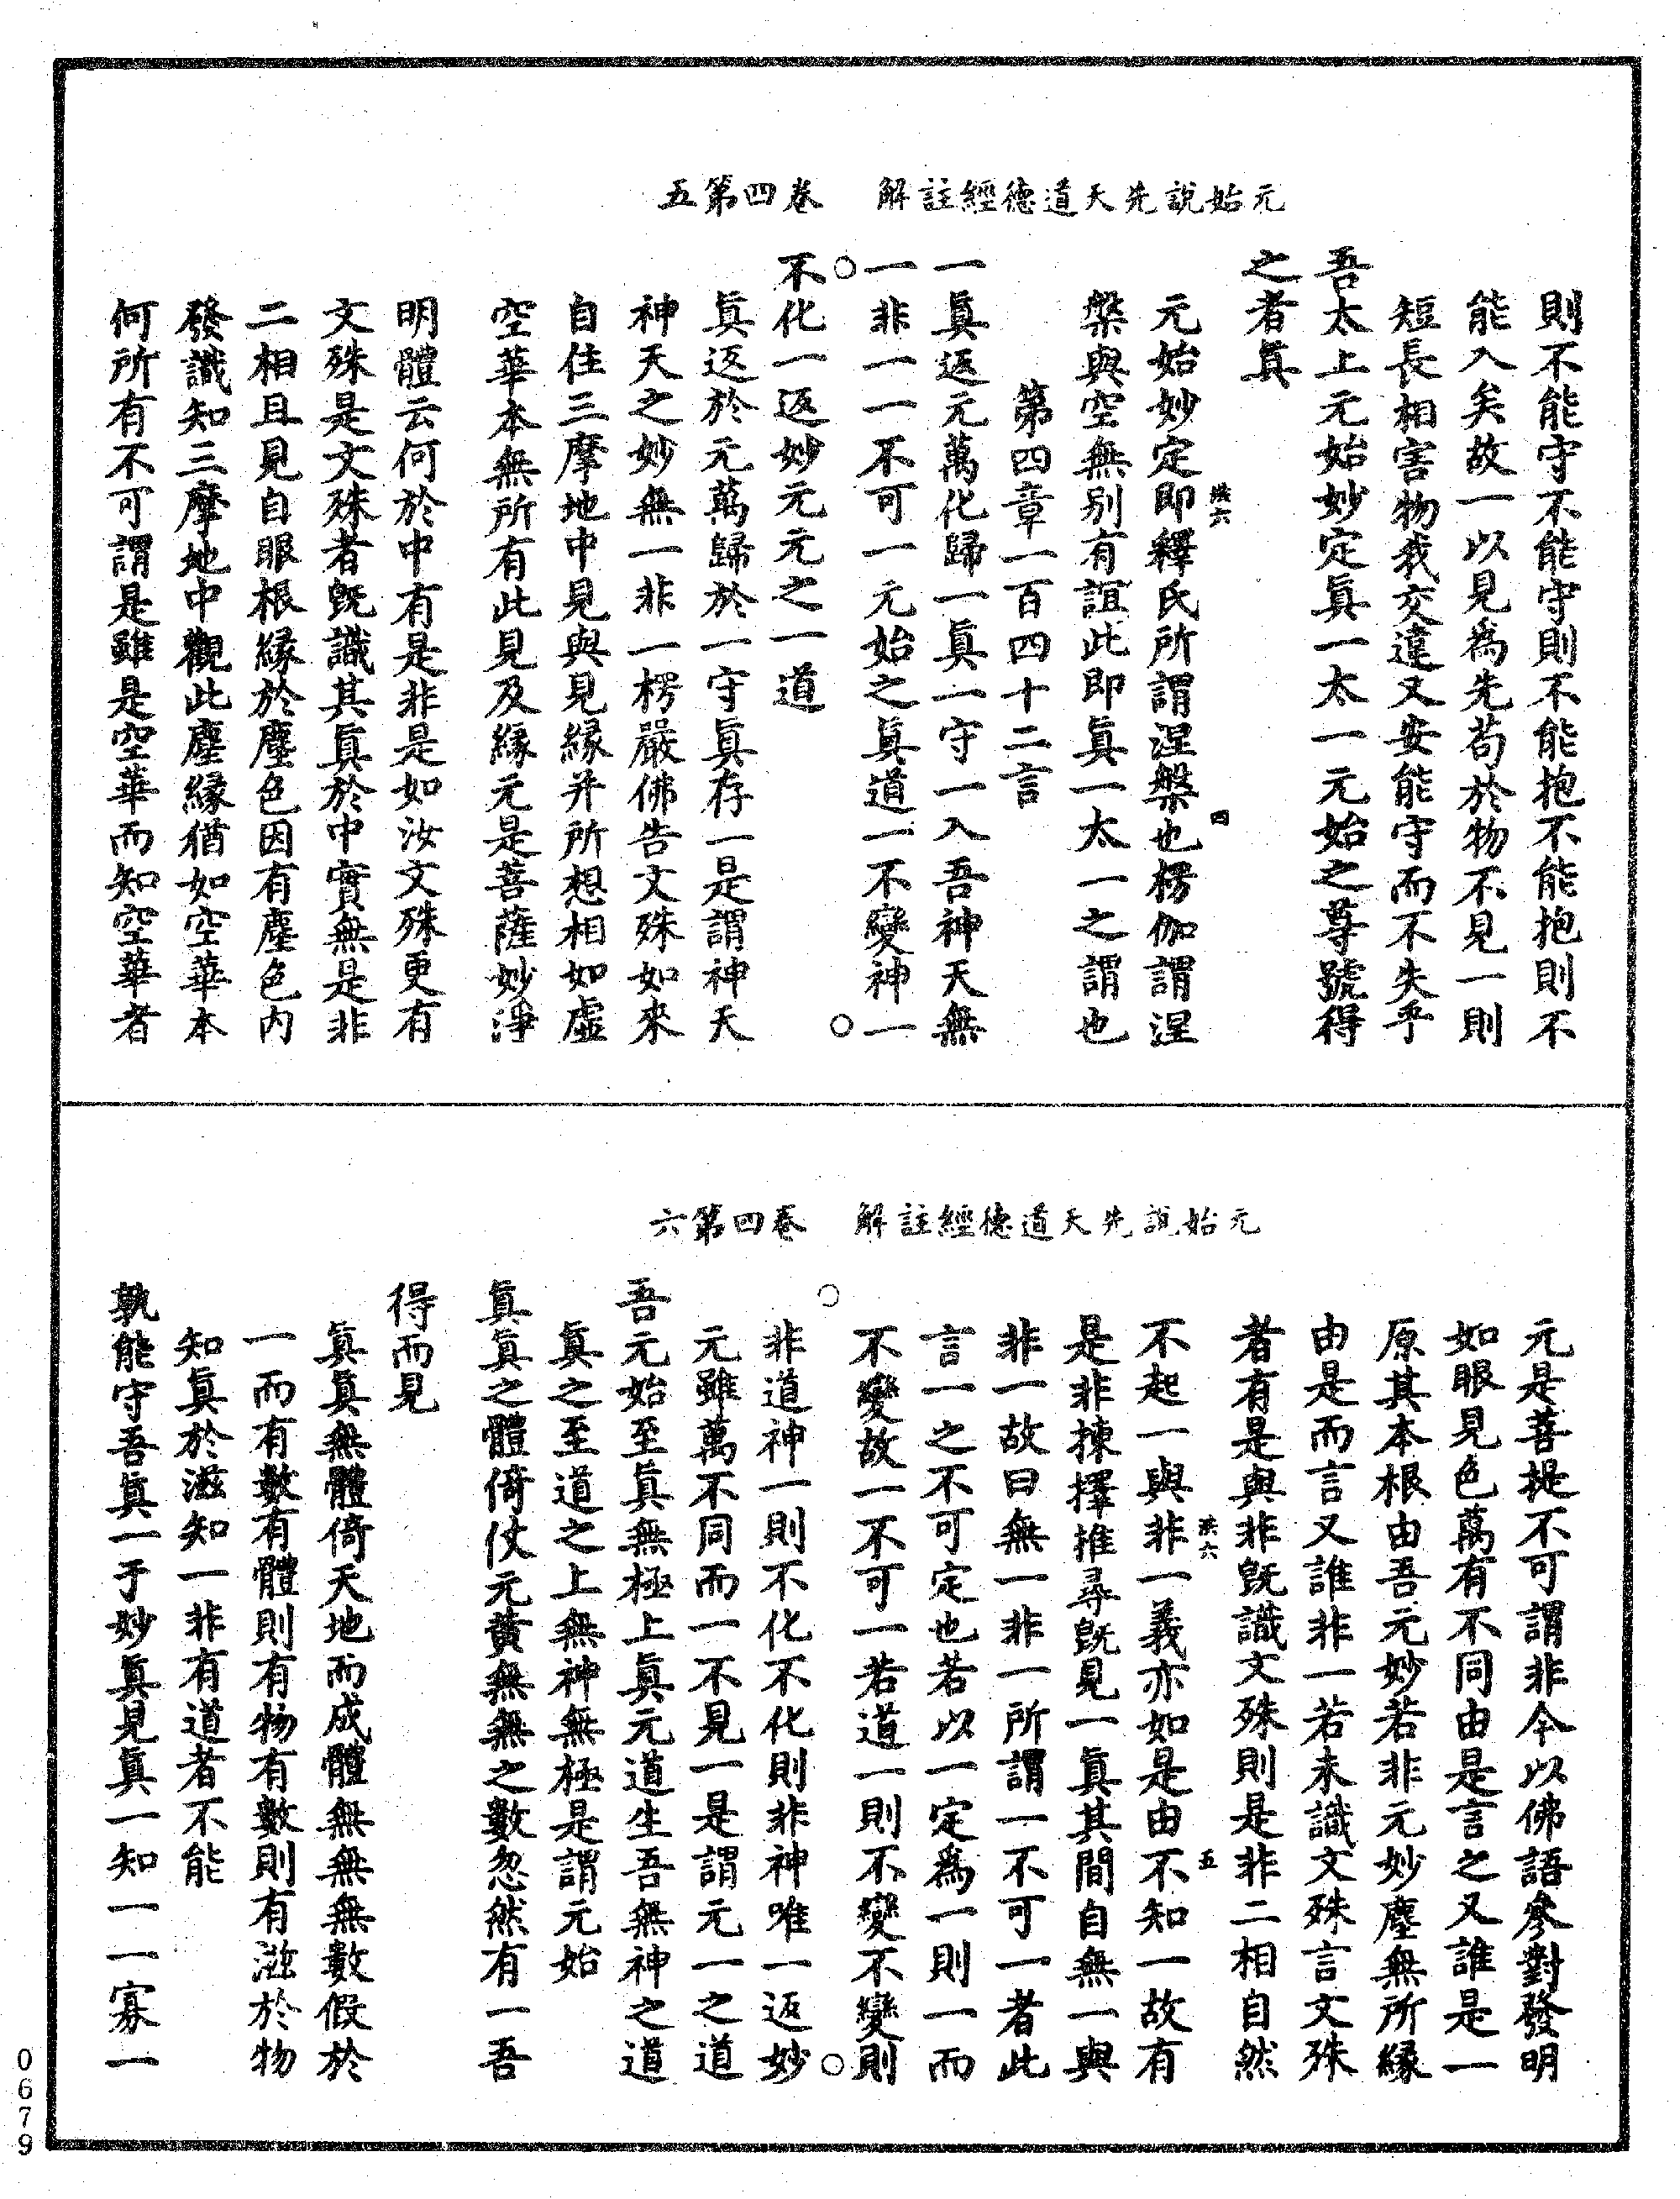 元始說先天道德經註解　卷四第五
則不能守不能守則不能抱不能抱則不
能入矣故一以見爲先苟於物不見一則
短長相害物我交違又安能守而不失乎
吾太上元始妙定眞一太一元始之尊號得
之者眞
元始妙定即釋氏所謂涅槃也楞伽謂涅
槃與空無別有誼此即眞一太一之謂也
第四章一百四十二言
一眞返元萬化歸一眞一守一入吾神天無
一非一一不可一元始之眞道一不變神一
不化一返妙元元之一道
眞返於元萬歸於一守眞存一是謂神天
神天之妙無一非一楞嚴佛告文殊如來
自住三摩地中見與見緣并所想相如虛
空華本無所有此見及緣元是菩薩妙淨
明體云何於中有是非是如汝文殊更有
文殊是文殊者旣識其眞於中實無是非
二相且見自眼根緣於塵色因有塵色內
發識知三摩地中觀此塵緣猶如空華本
何所有不可謂是雖是空華而知空華者
元始說先天道德經註解　卷四第六
元是菩提不可謂非今以佛語參對發明
如眼見色萬有不同由是言之又誰是一
原其本根由吾元妙若非元妙塵無所緣
由是而言又誰非一若未識文殊言文殊
者有是與非旣識文殊則是非二相自然
不起一與非一義亦如是由不知一故有
是非揀擇推尋旣見一眞其間自無一與
非一故曰無一非一所謂一不可一者此
言一之不可定也若以一定爲一則一而
不變故一不可一若道一則不變不變則
非道神一則不化不化則非神唯一返妙
元雖萬不同而一不見一是謂元一之道
吾元始至眞無極上眞元道生吾無神之道
眞之至道之上無神無極是謂元始
眞眞之體倚仗元黃無無之數忽然有一吾
得而見
眞眞無體倚天地而成體無無無數假於
一而有數有體則有物有數則有滋於物
知眞於滋知一非有道者不能
孰能守吾眞一于妙眞見眞一知一一寡一
0679